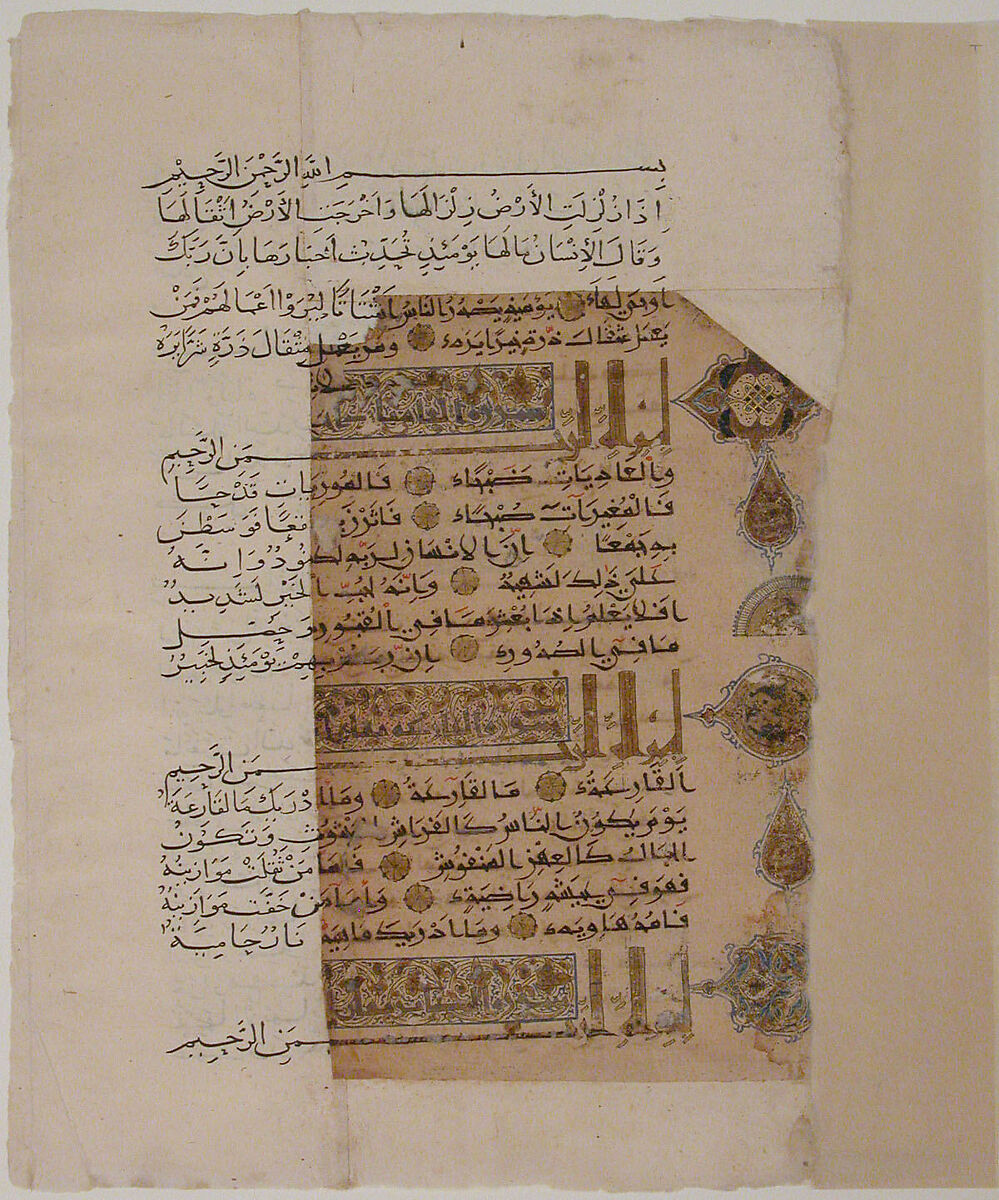 بِسْمِ اللَّهِ الرَّحْمَٰنِ الرَّحِيمِ
إِذَا زُلْزِلَتِ الْأَرْضُ زِلْزَالَهَا وَأَخْرَجَتِ الْأَرْضُ أَثْقَالَهَا
وَقَالَ الْإِنْسَانُ مَالَهَا يَوْمَئِذٍ تُحَدِّثُ أَخْبَارَهَا بِأَنَّ رَبَّكَ
أَوْحَى لَهَا يَوْمَئِذٍ يَصْدُرُ النَّاسُ أَشْتَاتًا لِيُرَوْا أَعْمَالَهُمْ فَمَنْ
يَعْمَلْ مِثْقَالَ ذَرَّةٍ خَيْرًا يَرَهُ وَمَنْ يَعْمَلْ مِثْقَالَ ذَرَّةٍ شَرًّا يَرَهُ
بسم الله الرحمن الرَّحِيمِ
وَالْعَادِيَاتِ ضَبْحًا فَالْمُورِيَاتِ قَدْحًا
فَالْمُغِيرَاتِ صُبْحًا فَأَثَرْنَ بِهِ نَقْعًا فَوَسَطْنَ
بِهِ جَمْعًا إِنَّ الْإِنْسَانَ لِرَبِّهِ لَكَنُودٌ وَإِنَّهُ
عَلَى ذَلِكَ لَشَهِيدٌ وَإِنَّهُ لِحُبِّ الْخَيْرِ لَشَدِيدٌ
أَفَلَا يَعْلَمُ إِذَا بُعْثِرَ مَا فِي الْقُبُورِ وَحُصِّلَ
مَا فِي الصُّدُورِ إِنَّ رَبَّهُمْ بِهِمْ يَوْمَئِذٍ لَخَبِيرٌ
سورة القارعة
بسم الله الرحمن الرَّحِيمِ
الْقَارِعَةُ مَا الْقَارِعَةُ وَمَا أَدْرَاكَ مَا الْقَارِعَةُ
يَوْمَ يَكُونُ النَّاسُ كَالْفَرَاشِ الْمَبْثُوثِ وَتَكُونُ
الْجِبَالُ كَالْعِهْنِ الْمَنْفُوشِ فَأَمَّا مَنْ ثَقُلَتْ مَوَازِينُهُ
فَهُوَ فِي عِيشَةٍ رَاضِيَةٍ وَأَمَّا مَنْ خَفَّتْ مَوَازِينُهُ
فَأُمُّهُ هَاوِيَةٌ وَمَا أَدْرَاكَ مَا هِيَهْ نَارٌ حَامِيَةٌ
بسم الله الرحمن الرَّحِيمِ